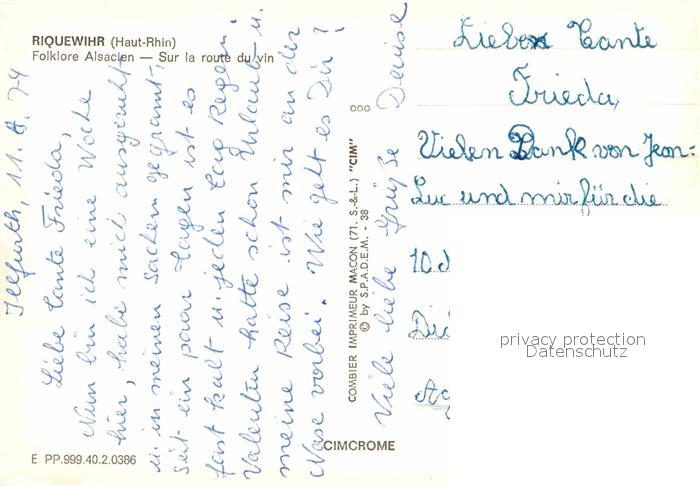 RIQUEWIHR (Haut-Rhin)
Folklore Alsacien — Sur la route du vin
Illfurth, 11. 8. 74
Liebe Tante Frieda,
Nun bin ich eine Woche
hier, habe mich ausgeruht
u. in meinen Sachen gekramt.
Seit ein paar Tagen ist es
fast kalt u. jeden Tag Regen.
Valentin hatte schon Urlaub u.
meine Reise ist mir an der
Nase vorbei. Wie geht es Dir?
Viele liebe Grüße Denise
E PP.999.40.2.0386
CIMCROME
COMBIER IMPRIMEUR MACON (71. S.-&-L.) "CIM"
© by S.P.A.D.E.M. - 38
Liebe Tante
Frieda,
Vielen Dank von Jean-
Luc und mir für die
10.
privacy protection
Datenschutz